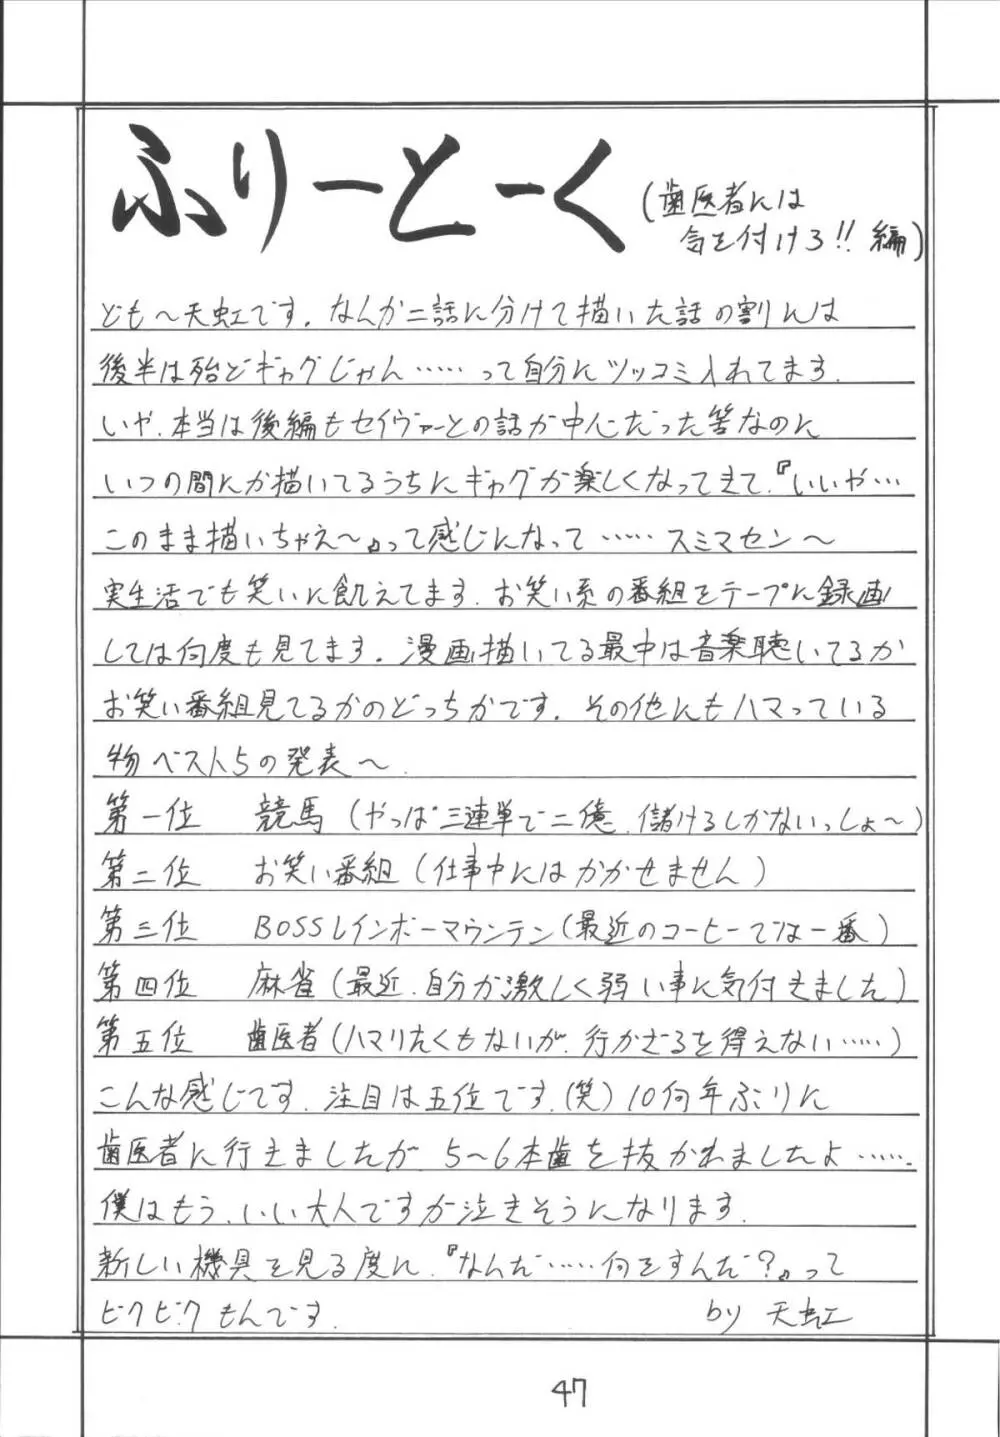 ふりーとーく(歯医者には
気を付けろ!!編)
ども〜天虹です。なんか二話に分けて描いた話の割には
後半は殆どギャグじゃん……って自分にツッコミ入れてます。
いや、本当は後編もセイヴァーとの話が中心だった筈なのに
いつの間にか描いてるうちにギャグが楽しくなってきて、『いいや…
このまま描いちゃえ〜』って感じになって……スミマセン〜
実生活でも笑いに飢えてます。お笑い系の番組をテープに録画
しては何度も見てます。漫画描いてる最中は音楽聴いてるか
お笑い番組見てるかのどっちかです。その他にもハマっている
物ベスト5の発表〜
第一位 競馬(やっぱ三連単で二億、儲けるしかないっしょ〜)
第二位 お笑い番組(仕事中にはかかせません)
第三位 BOSSレインボーマウンテン(最近のコーヒーでは一番)
第四位 麻雀(最近、自分が激しく弱い事に気付きました)
第五位 歯医者(ハマりたくもないが、行かざるを得えない……)
こんな感じです。注目は五位です。(笑)10何年ぶりに
歯医者に行きましたが、5〜6本歯を抜かれましたよ……。
僕はもう、いい大人ですが泣きそうになります。
新しい機具を見る度に、『なんだ……何をすんだ?』って
ビクビクもんです。 by 天虹
47